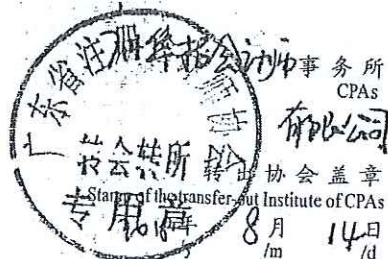 广东省注册会计师协会
事务所
CPAs
转会转所
转出协会盖章
Stamp of the transfer-out Institute of CPAs
专用章
年 8月 14日
/m /d